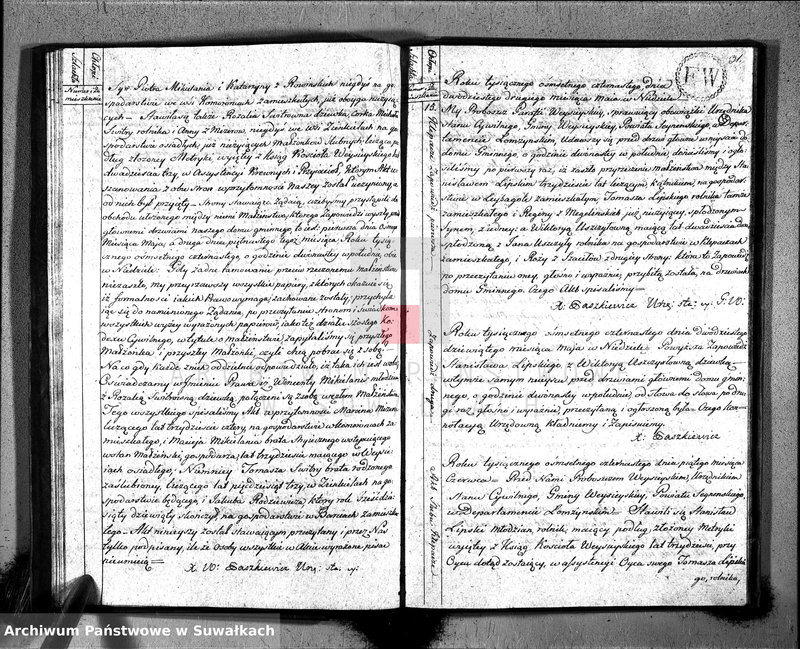 Syn Piotra Mikielania i Katarzyny z Rowińskich niegdyś na go-
spodarstwie we wsi Komoronach zamieszkałych, już oboyga nieżyją-
cych — Stawiła się także Rozalia Swotrowna dziewka, corka
Swotry rolnika i Anny z niegdyś we wsi Zienkielach na go-
spodarstwie osiadłych już nieżyjących Małżonków ślubnych, licząca po-
dług złożoney Metryki wyjętey z Ksiąg Kościoła Weysieyskiego lat
dwadzieścia trzy, w Assystencyi Krewnych i Przyjaciół, którym Akt u-
szanowania z obu stron w przytomności naszey został uczyniony a
od nich był przyięty — Strony stawaiące żądaią, ażebyśmy przystąpili do
obchodu ułożonego między niemi Małżeństwa, którego zapowiedzi wyszły przed
głównemi drzwiami naszego domu gminnego, to iest: pierwsza dnia osmego
Miesiąca Maja, a druga dnia piętnastego tegoż miesiąca Roku tysią-
cznego osmsetnego czternastego, o godzinie dwunastey w południe, obie
w Niedziele. Gdy żadne tamowanie przeciw rzeczonemu małżeństwu
nie zaszło, My przejrzawszy wszystkie papiery, z których okazuie się
iż formalności iakich Prawo wymaga, zachowane zostały; przychyla-
iąc się do namienionego żądania, po przeczytaniu stronom i świadkom
wszystkich wyżey wyrażonych papierów, iako też działu szóstego Ko-
dexu Cywilnego, w tytule o małżeństwie, zapytaliśmy się przyszłego
Małżonka i przyszłey Małżonki, czyli chcą pobrać się z sobą.
Na co gdy każde z nich oddzielnie odpowiedziało, iż taka ich iest wola
Oświadczamy w Imieniu Prawa iż Wincenty Mikielanis młodzian
z Rozalią Swotrowną dziewką, połączeni są z sobą węzłem Małżeństwa.
Tego wszystkiego spisaliśmy Akt w przytomności Marcina
liczącego lat trzydzieści cztery, na gospodarstwie w Komoronach za-
mieszkałego, i Macieja Mikielania brata stryiecznego wstępuiącego
w stan Małżeński, gospodarza, lat trzydzieści maiącego w Weysie-
iach osiadłego, Niemniey Tomasza Swotry brata rodzonego
zaślubioney, liczącego lat pięćdziesiąt trzy, w Zienkielach na go-
spodarstwie będącego, i Jakuba Rodziewicza, który rok sześćdzie-
siąty dziewiąty skończył, na gospodarstwie w Barciach zamieszka-
łego — Akt ninieyszy został stawaiącym przeczytany i przez Nas
tylko podpisany, ile że osoby wszystkie w Akcie wyrażone pisać
nieumieią —
X. W: Saszkiewicz Urzę: sta: cy:
31.
F W
Roku tysiącznego osmsetnego czternastego, dnia
dwudziestego drugiego miesiąca maia w Niedziele.
13. My Proboszcz Parafii Weysieyskiey, sprawuiący obowiązki Urzędnika
Stanu Cywilnego, Gminy Weysieyskiey, Powiatu Seyneńskiego, w Depar-
tamencie Łomżyńskim. Udawszy się przed drzwi główne wniyścia do
domu Gminnego, o godzinie dwunastey w południe, donieśliśmy i ogło-
siliśmy po pierwszy raz, iż zaszło przyrzeczenie małżeństwa między Sta-
nisławem Lipskim, trzydzieście lat liczącym rolnikiem, na gospodar-
stwie w zamieszkałym, Tomasza Lipskiego rolnika tamże
zamieszkałego i Reginy z już nieżyjący, spłodzonym
Synem, z iedney: a Wiktoryą Uszczyłowną, maiącą lat dwadzieścia dwa,
spłodzoną z Jana Uszczyły rolnika na gospodarstwie w Kłepaczach
zamieszkałego, i Rozy z drugiey strony: która to Zapowiedź
po przeczytaniu oney, głośno i wyraźnie, przybitą została, na drzwiach
domu Gminnego. Czego Akt spisaliśmy —
X. Saszkiewicz Urzę: sta: cy: G: W:
Roku tysiącznego osmsetnego czternastego dnia dwudziestego
dziewiątego miesiąca maja w Niedziele — Powyższa Zapowiedź
Stanisława Lipskiego z Wiktoryą Uszczyłowną dziewką —
w tymże samym mieyscu przed drzwiami głównemi domu gmin-
nego, o godzinie dwunastey w południe, od słowa do słowa po dru-
gi raz, głośno i wyraźnie, przeczytaną i ogłoszoną była. Czego Kon-
notacyą Urzędową kładniemy i Zapisuiemy.
X. Saszkiewicz
Roku tysiącznego osmsetnego czternastego dnia piątego miesiąca
Czerwca — Przed Nami Proboszczem Weysieyskim, Urzędnikiem
Stanu Cywilnego, Gminy Weysieyskiey, Powiatu Seyneńskiego,
w Departamencie Łomżyńskim — Stawił się Stanisław
Lipski Młodzian, rolnik, maiący podług złożoney Metryki
wyjętey z Ksiąg Kościoła Weysieyskiego lat trzydzieści, przy
Oycu dotąd zostaiący, w assystencyi Oyca swego Tomasza Lipskie-
go, rolnika,
Archiwum Państwowe w Suwałkach